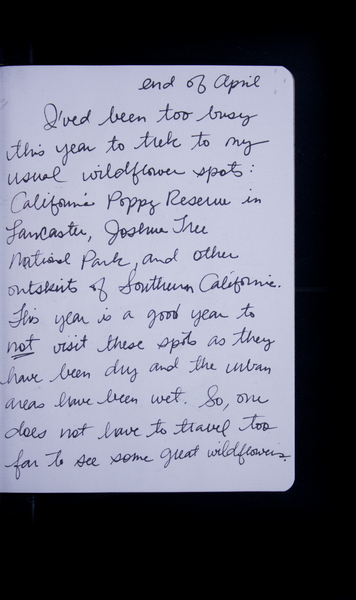 end of April
I'ved been too busy
this year to trek to my
usual wildflower spots:
California Poppy Reserve in
Lancaster, Joshua Tree
National Park, and other
outskirts of Southern California.
This year is a good year to
not visit these spots as they
have been dry and the urban
areas have been wet. So, one
does not have to travel too
far to see some great wildflowers.